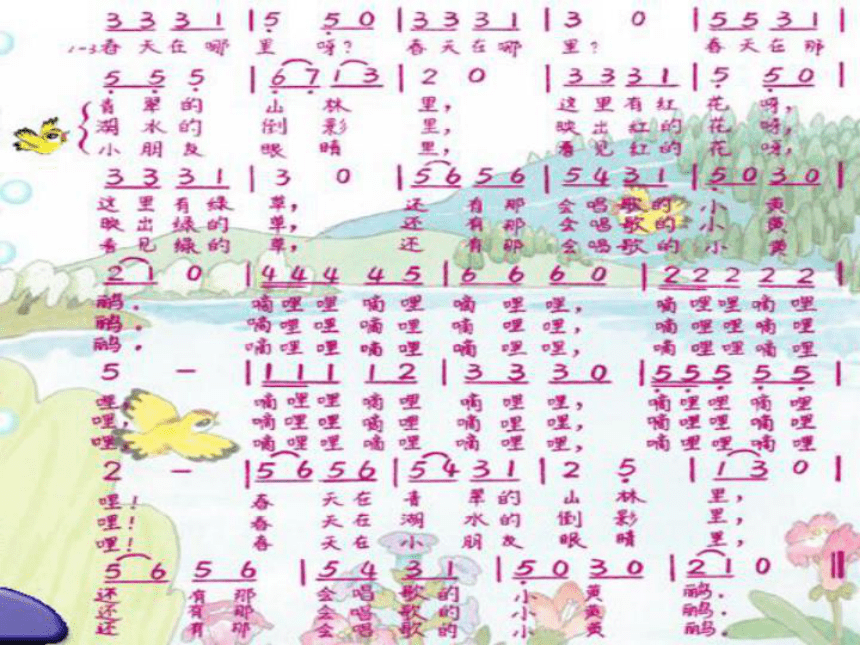 3 3 3 1 | 5 5 0 | 3 3 3 1 | 3 0 | 5 5 3 1 |
1-3春 天 在 哪 里 呀？ 春 天 在 哪 里？ 春 天 在 那
5 5 5 | 6 7 1 3 | 2 0 | 3 3 3 1 | 5 5 0 |
青 翠 的 山 林 里， 这 里 有 红 花 呀，
湖 水 的 倒 影 里， 映 出 红 的 花 呀，
小 朋 友 眼 睛 里， 看 见 红 的 花 呀，
3 3 3 1 | 3 0 | 5 6 5 6 | 5 4 3 1 | 5 0 3 0 |
这 里 有 绿 草， 还 有 那 会 唱 歌 的 小 黄
映 出 绿 的 草， 还 有 那 会 唱 歌 的 小 黄
看 见 绿 的 草， 还 有 那 会 唱 歌 的 小 黄
2 1 0 | 4 4 4 4 5 | 6 6 6 0 | 2 2 2 2 2 |
鹂。 嘀 哩 哩 嘀 哩 嘀 哩 哩， 嘀 哩 哩 嘀 哩
鹂。 嘀 哩 哩 嘀 哩 嘀 哩 哩， 嘀 哩 哩 嘀 哩
鹂。 嘀 哩 哩 嘀 哩 嘀 哩 哩， 嘀 哩 哩 嘀 哩
5 － | 1 1 1 1 2 | 3 3 3 0 | 5 5 5 5 5 |
哩， 嘀 哩 哩 嘀 哩 嘀 哩 哩， 嘀 哩 哩 嘀 哩
哩， 嘀 哩 哩 嘀 哩 嘀 哩 哩， 嘀 哩 哩 嘀 哩
哩， 嘀 哩 哩 嘀 哩 嘀 哩 哩， 嘀 哩 哩 嘀 哩
2 － | 5 6 5 6 | 5 4 3 1 | 2 5 | 1 3 0 |
哩！ 春 天 在 青 翠 的 山 林 里，
哩！ 春 天 在 湖 水 的 倒 影 里，
哩！ 春 天 在 小 朋 友 眼 睛 里，
5 6 5 6 | 5 4 3 1 | 5 0 3 0 | 2 1 0 ‖
还 有 那 会 唱 歌 的 小 黄 鹂。
还 有 那 会 唱 歌 的 小 黄 鹂。
还 有 那 会 唱 歌 的 小 黄 鹂。